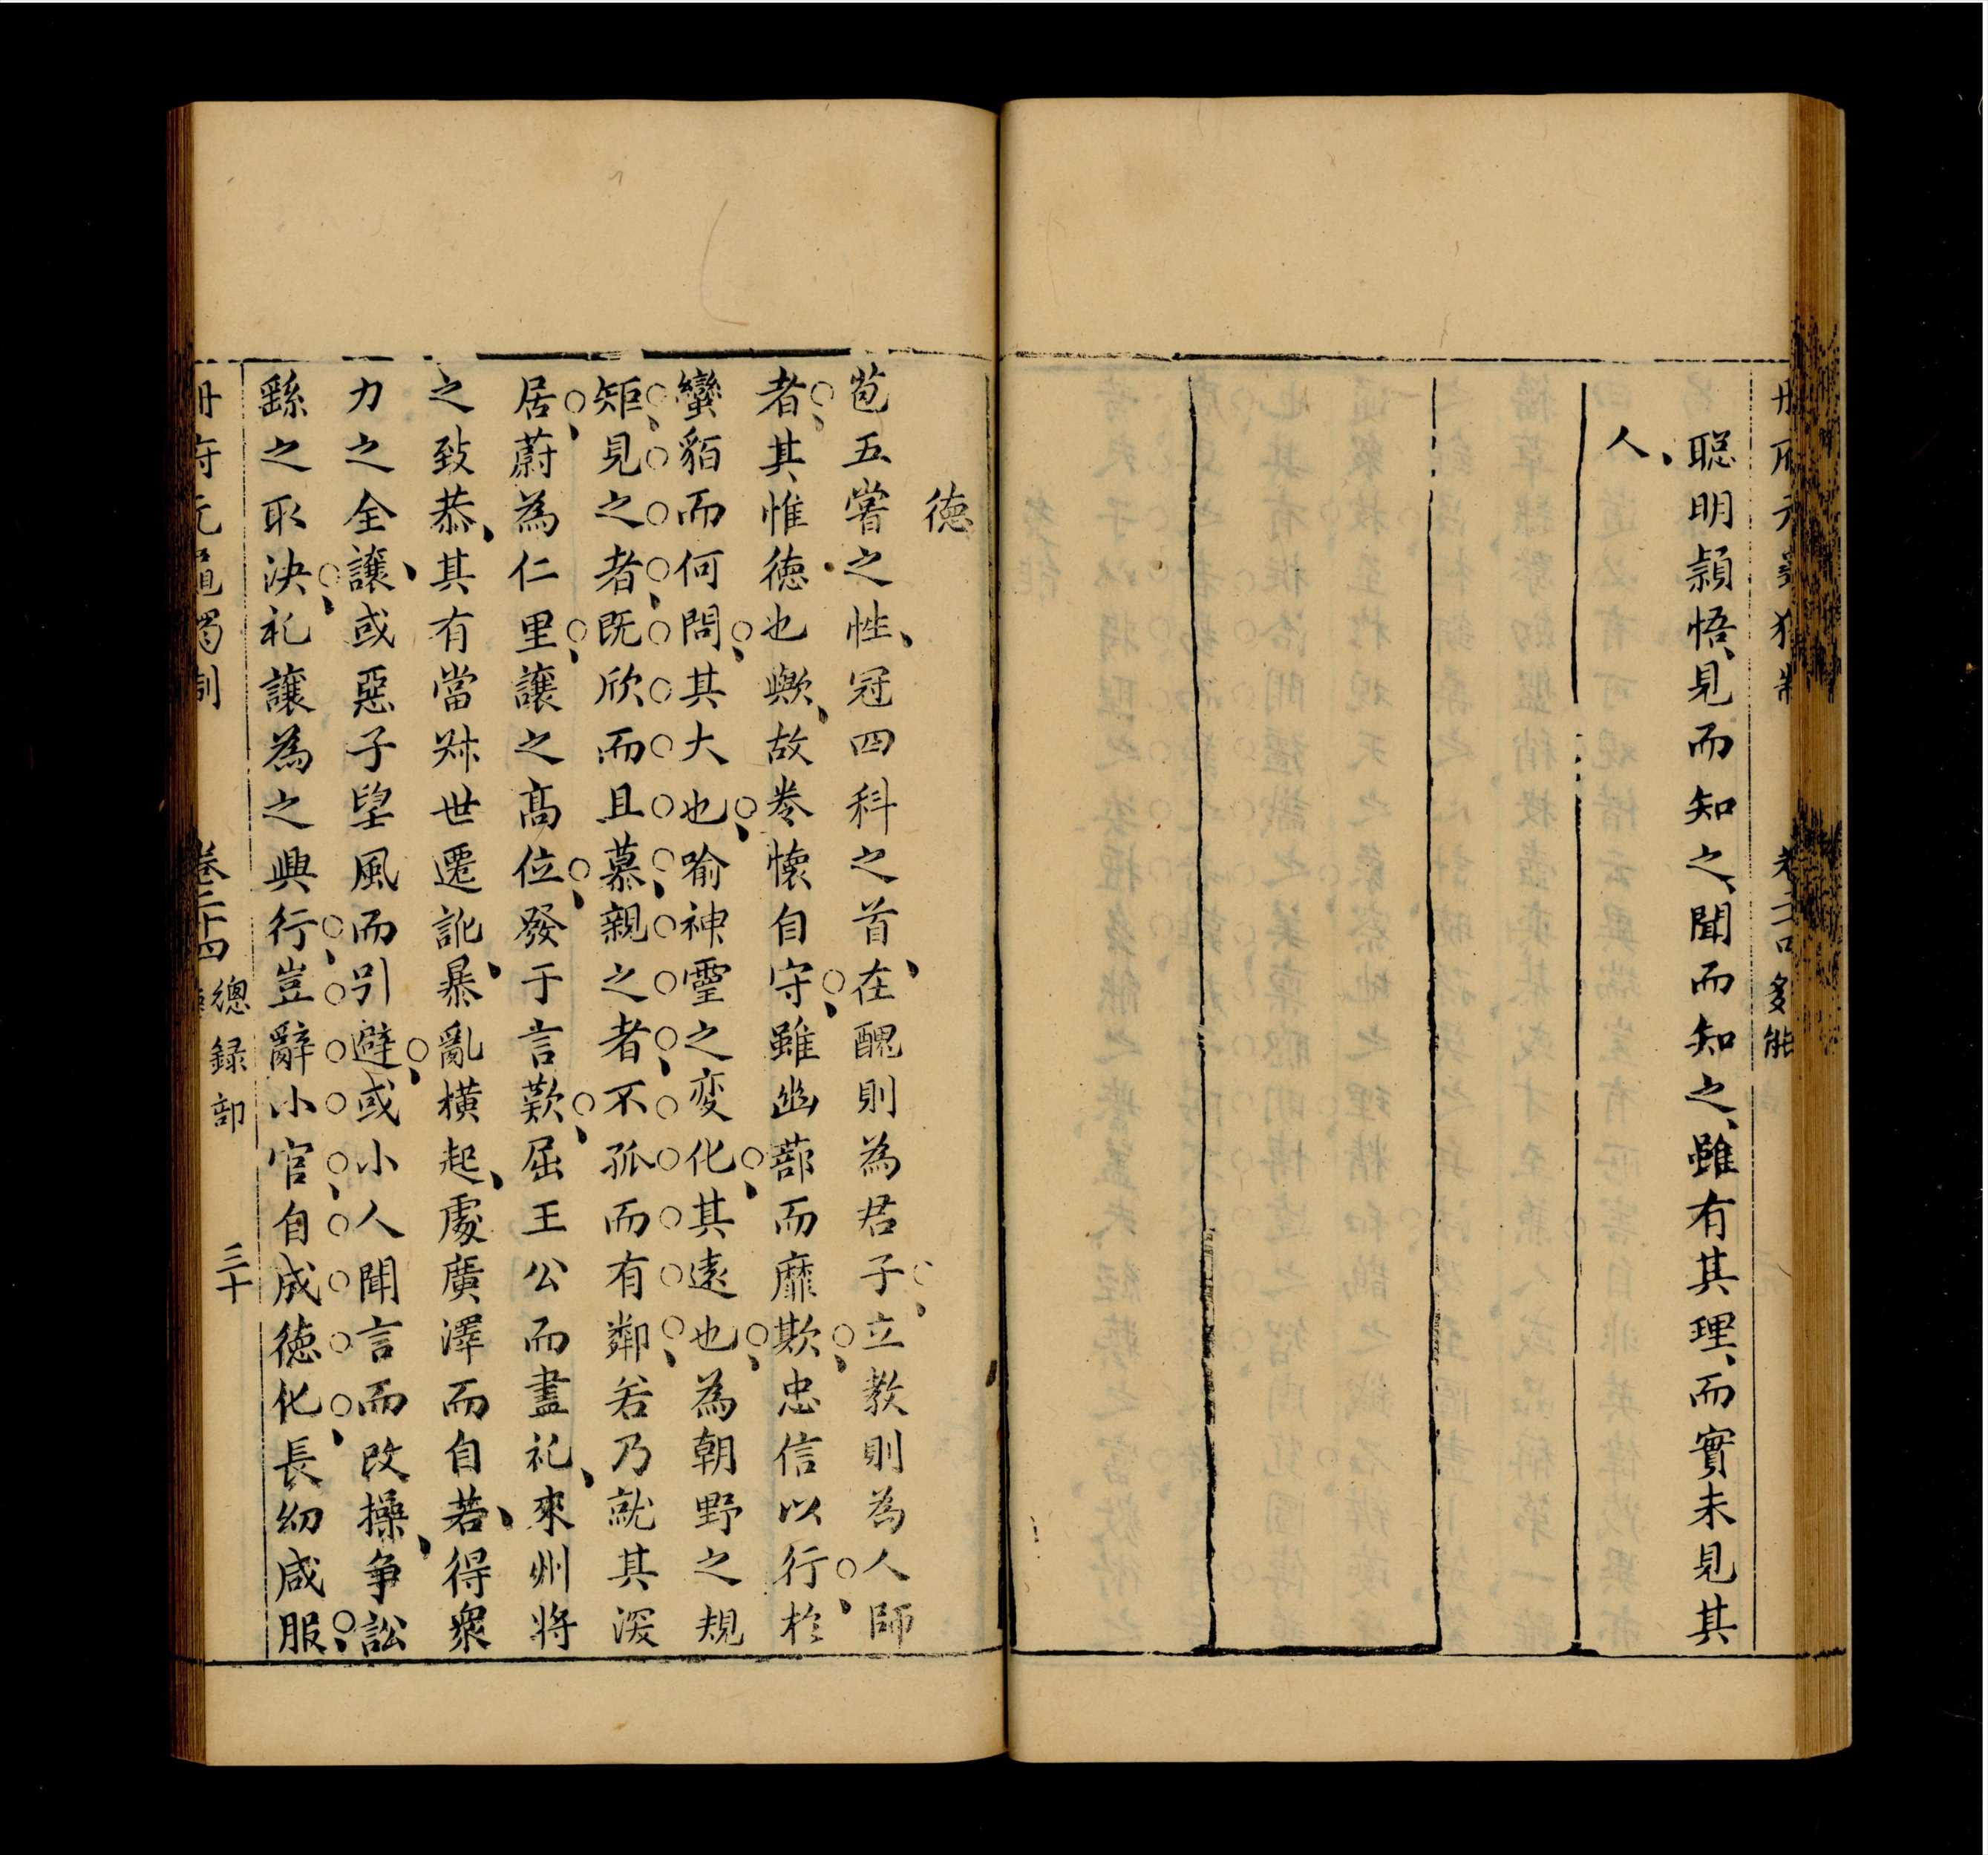 聪明頴悟見而知之聞而知之雖有其理而實未見其
人
卷二十四 多能
德
苞五嘗之性冠四科之首在醜則為君子立教則為人師
者其惟德也歟故卷懷自守雖幽蔀而靡欺忠信以行於
蠻貊而何問其大也喻神靈之変化其遠也為朝野之規
矩見之者既欣而且慕親之者不孤而有鄰若乃就其深
居蔚為仁里讓之高位發于言歎屈王公而盡礼來州將
之致恭其有當叔世遷訛暴亂橫起處廣澤而自若得衆
力之全讓或惡子望風而引避或小人聞言而改操争訟
繇之取決礼讓為之興行豈辭小官自成德化長幼咸服
冊府元龜獨制 卷二十四 總録部 三十